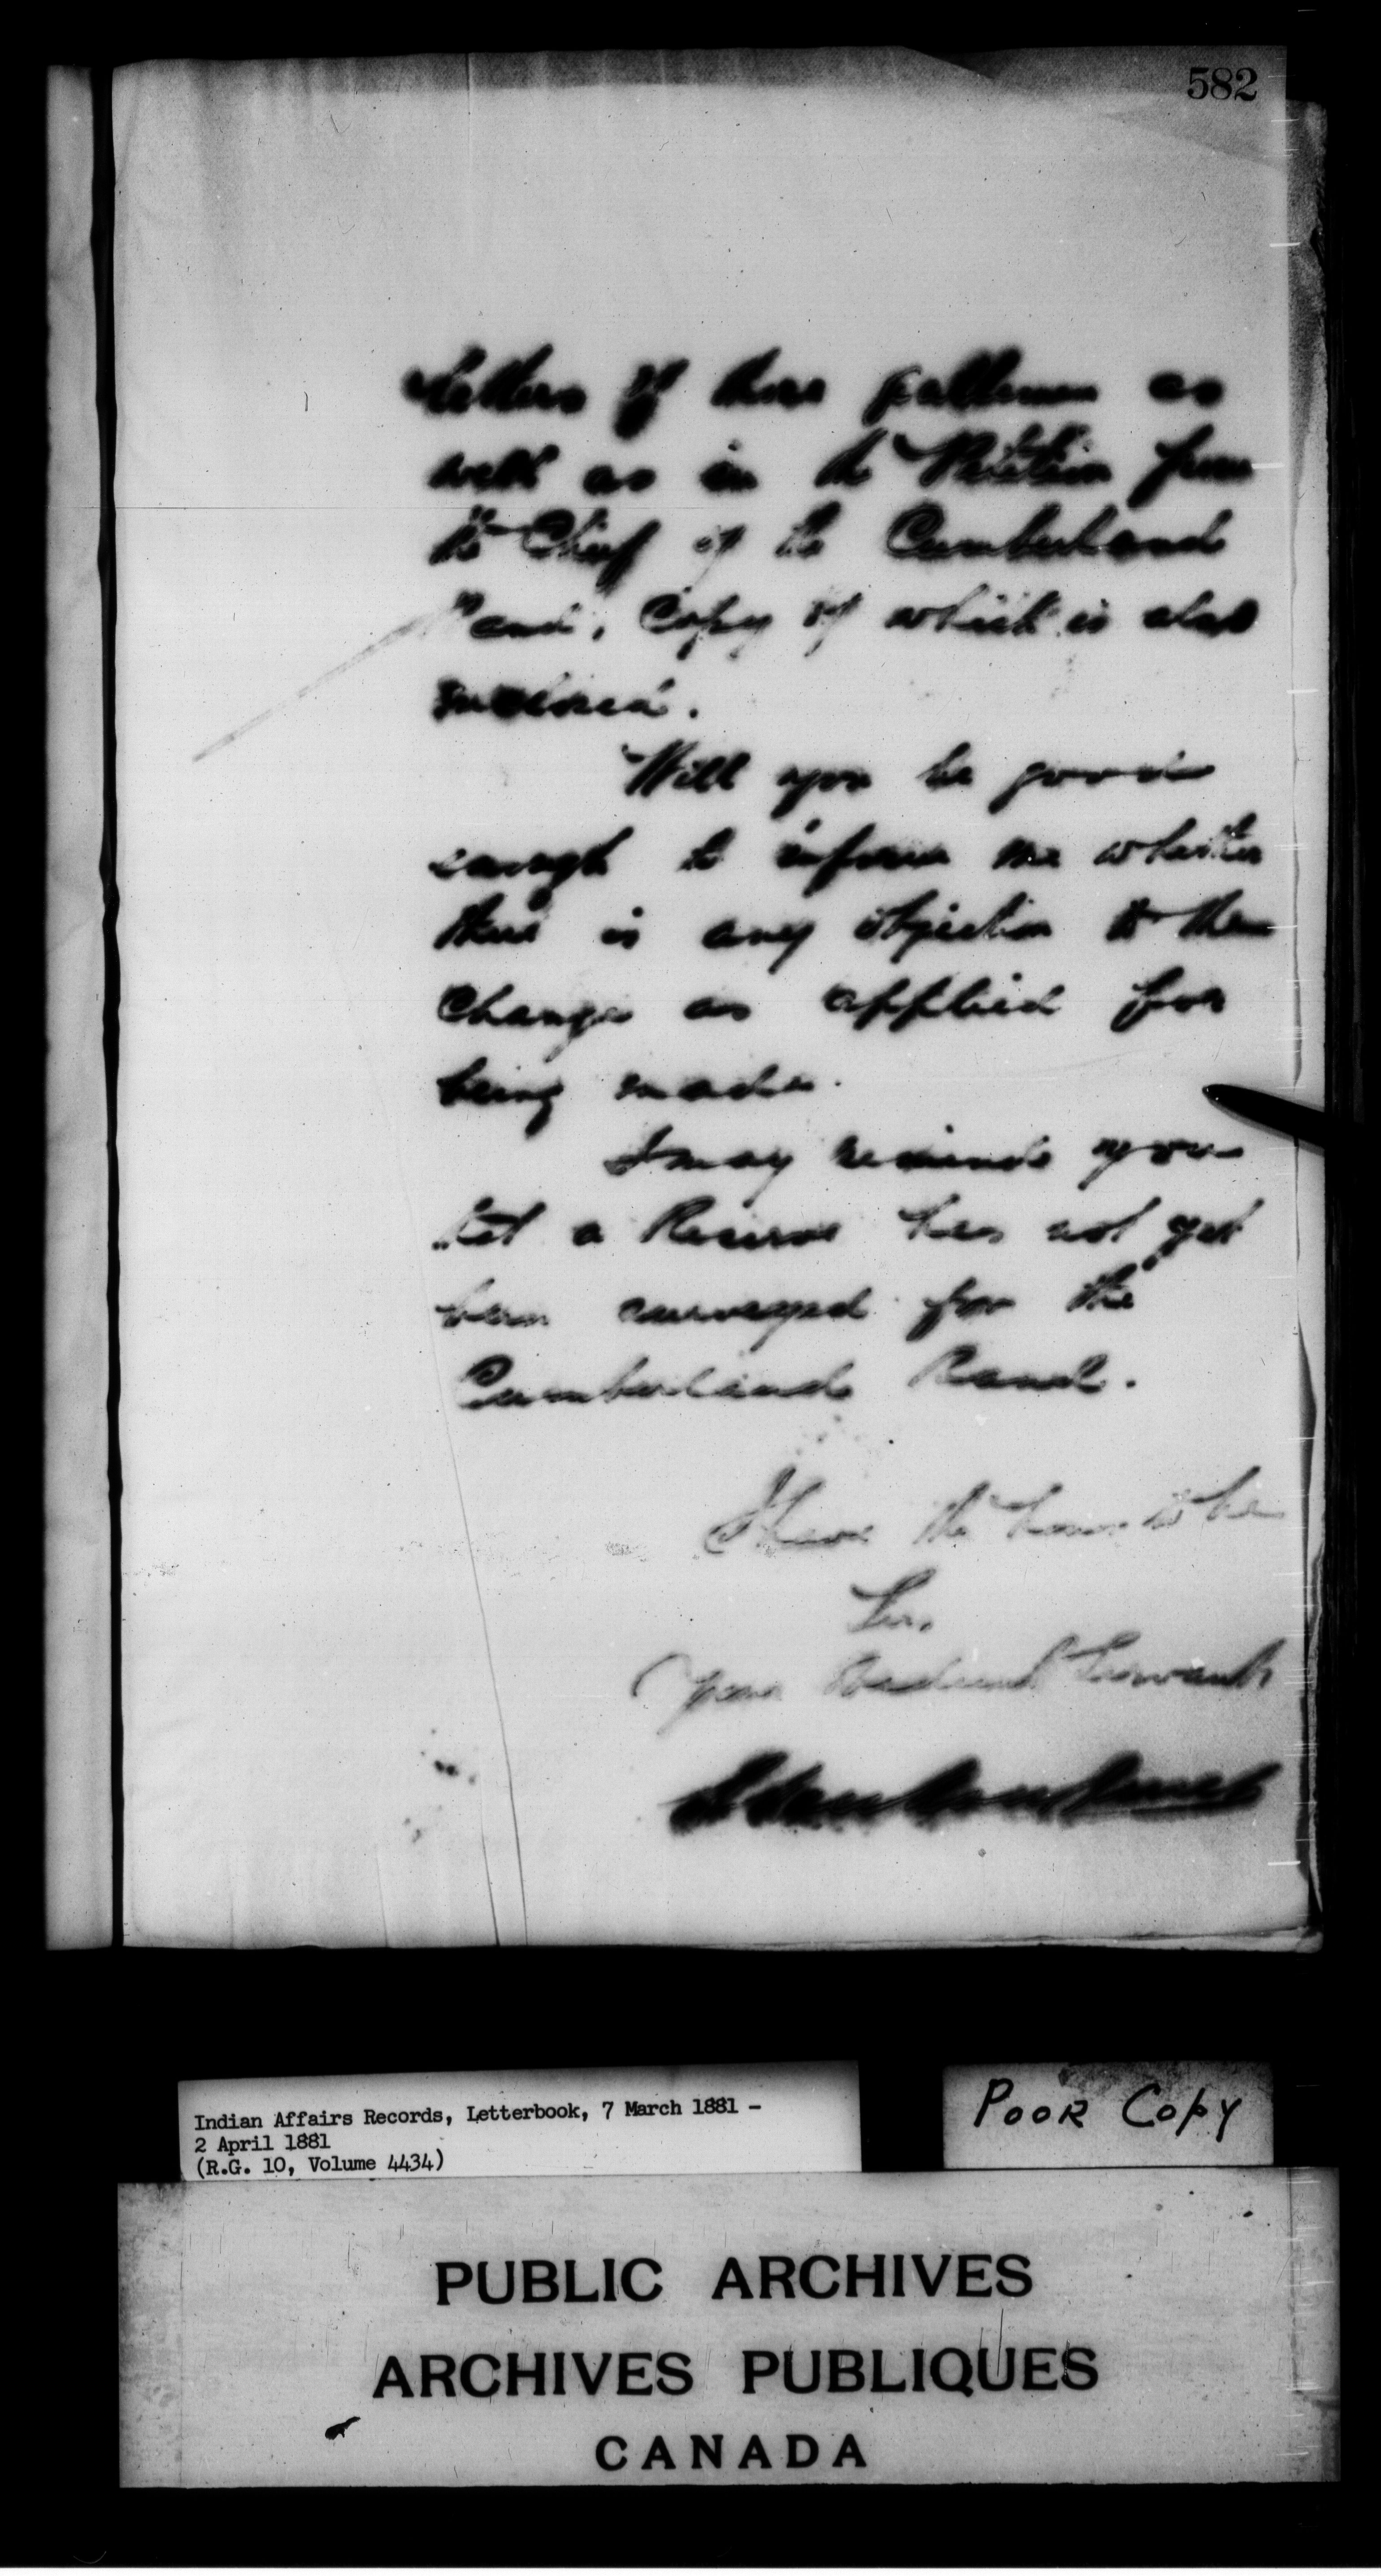 582
Letters of those gentlemen as
well as in the Petition from
the Chief of the Cumberland
Band, Copy of which is also
enclosed.
Will you be good
enough to inform me whether
there is any objection to the
change as applied for
being made.
I may remind you
that a Reserve has not yet
been surveyed for the
Cumberland Band.
I have the honor to be
Sir,
Your Obedient Servant
Indian Affairs Records, Letterbook, 7 March 1881 -
2 April 1881
(R.G. 10, Volume 4434)
POOR COPY
PUBLIC ARCHIVES
ARCHIVES PUBLIQUES
CANADA